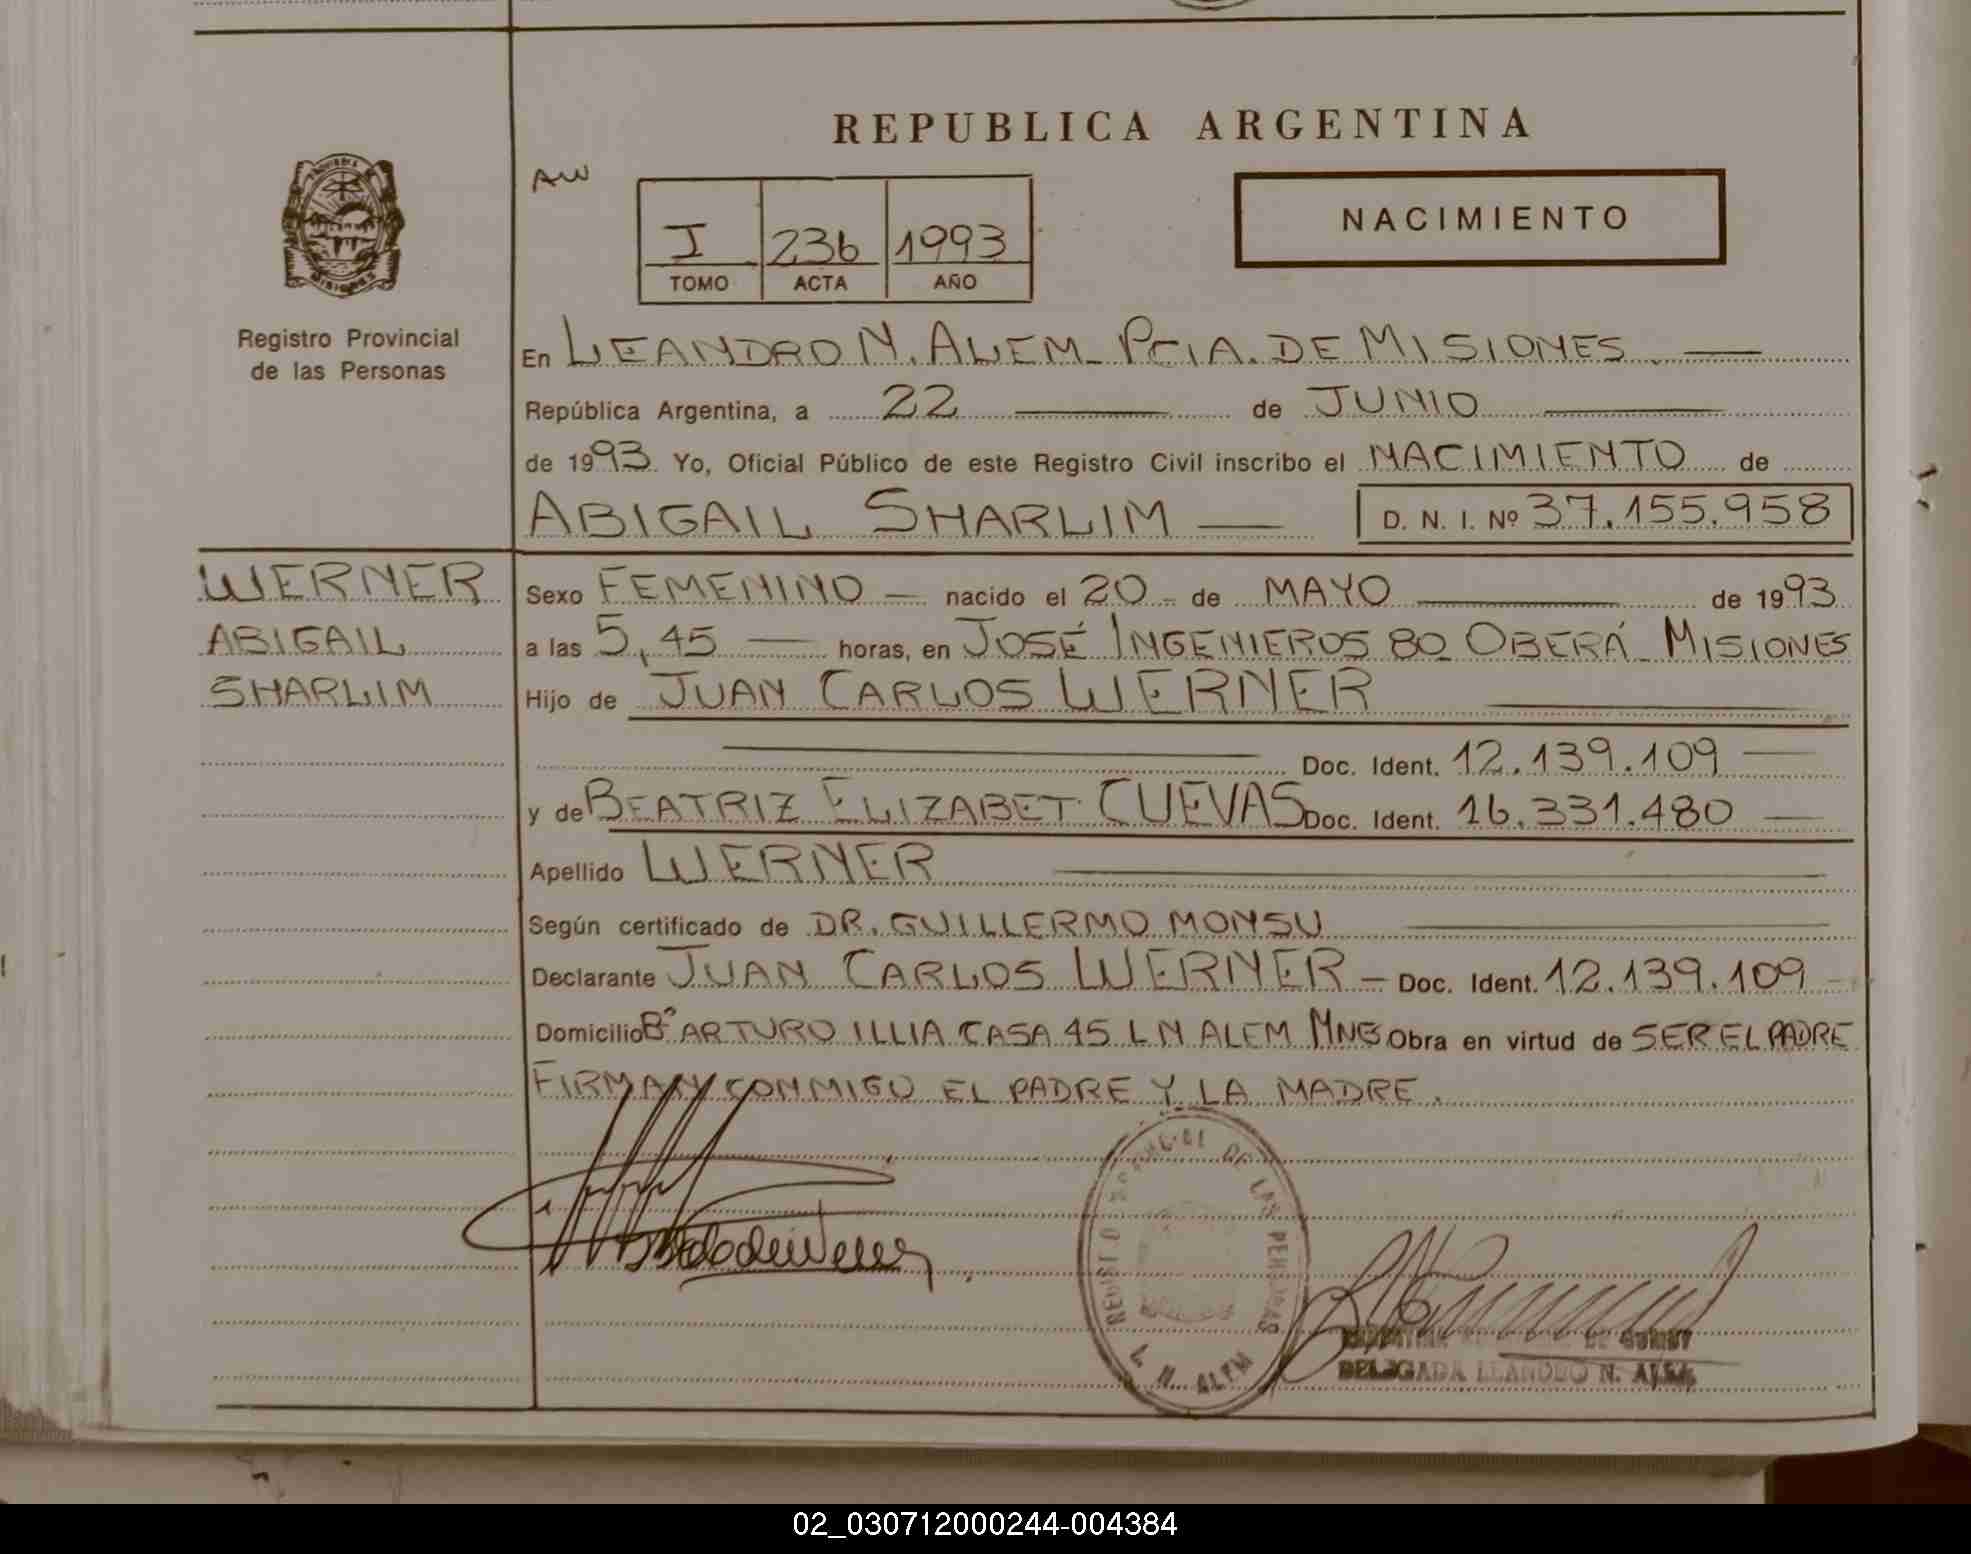 REPUBLICA ARGENTINA
AW
I 236 1993
TOMO ACTA AÑO
NACIMIENTO
Registro Provincial
de las Personas
En LEANDRO N. ALEM - PCIA. DE MISIONES.
República Argentina, a 22 de JUNIO
de 1993. Yo, Oficial Público de este Registro Civil inscribo el NACIMIENTO de
ABIGAIL SHARLIM D. N. I. Nº 37.155.958
WERNER
ABIGAIL
SHARLIM
Sexo FEMENINO - nacido el 20 - de MAYO de 1993
a las 5,45 horas, en JOSÉ INGENIEROS 80 - OBERÁ - MISIONES
Hijo de JUAN CARLOS WERNER
Doc. Ident. 12.139.109
y de BEATRIZ ELIZABET CUEVAS Doc. Ident. 16.331.480
Apellido WERNER
Según certificado de DR. GUILLERMO MONSU
Declarante JUAN CARLOS WERNER - Doc. Ident. 12.139.109
Domicilio Bº ARTURO ILLIA CASA 45 L N ALEM MNES Obra en virtud de SER EL PADRE
FIRMAN CONMIGO EL PADRE Y LA MADRE.
REGISTRO PROVINCIAL DE LAS PERSONAS
L. N. ALEM
DELEGADA LEANDRO N. ALEM
02_030712000244-004384